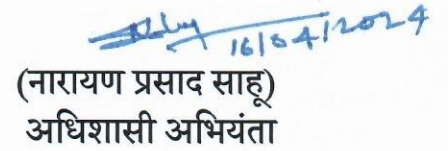 16/04/2024
(नारायण प्रसाद साहू)
अधिशासी अभियंता